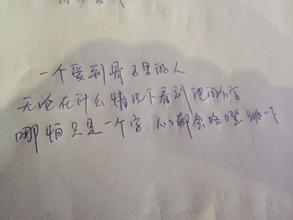 一个爱到骨子里的人
无论在什么情况下看到他的名字
哪怕只是一个字，心都会咯噔跳一下